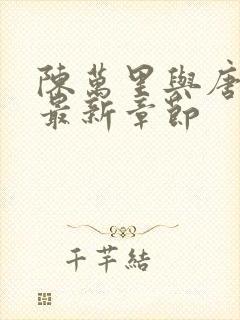 陳萬里與唐
最新章節
千芊結